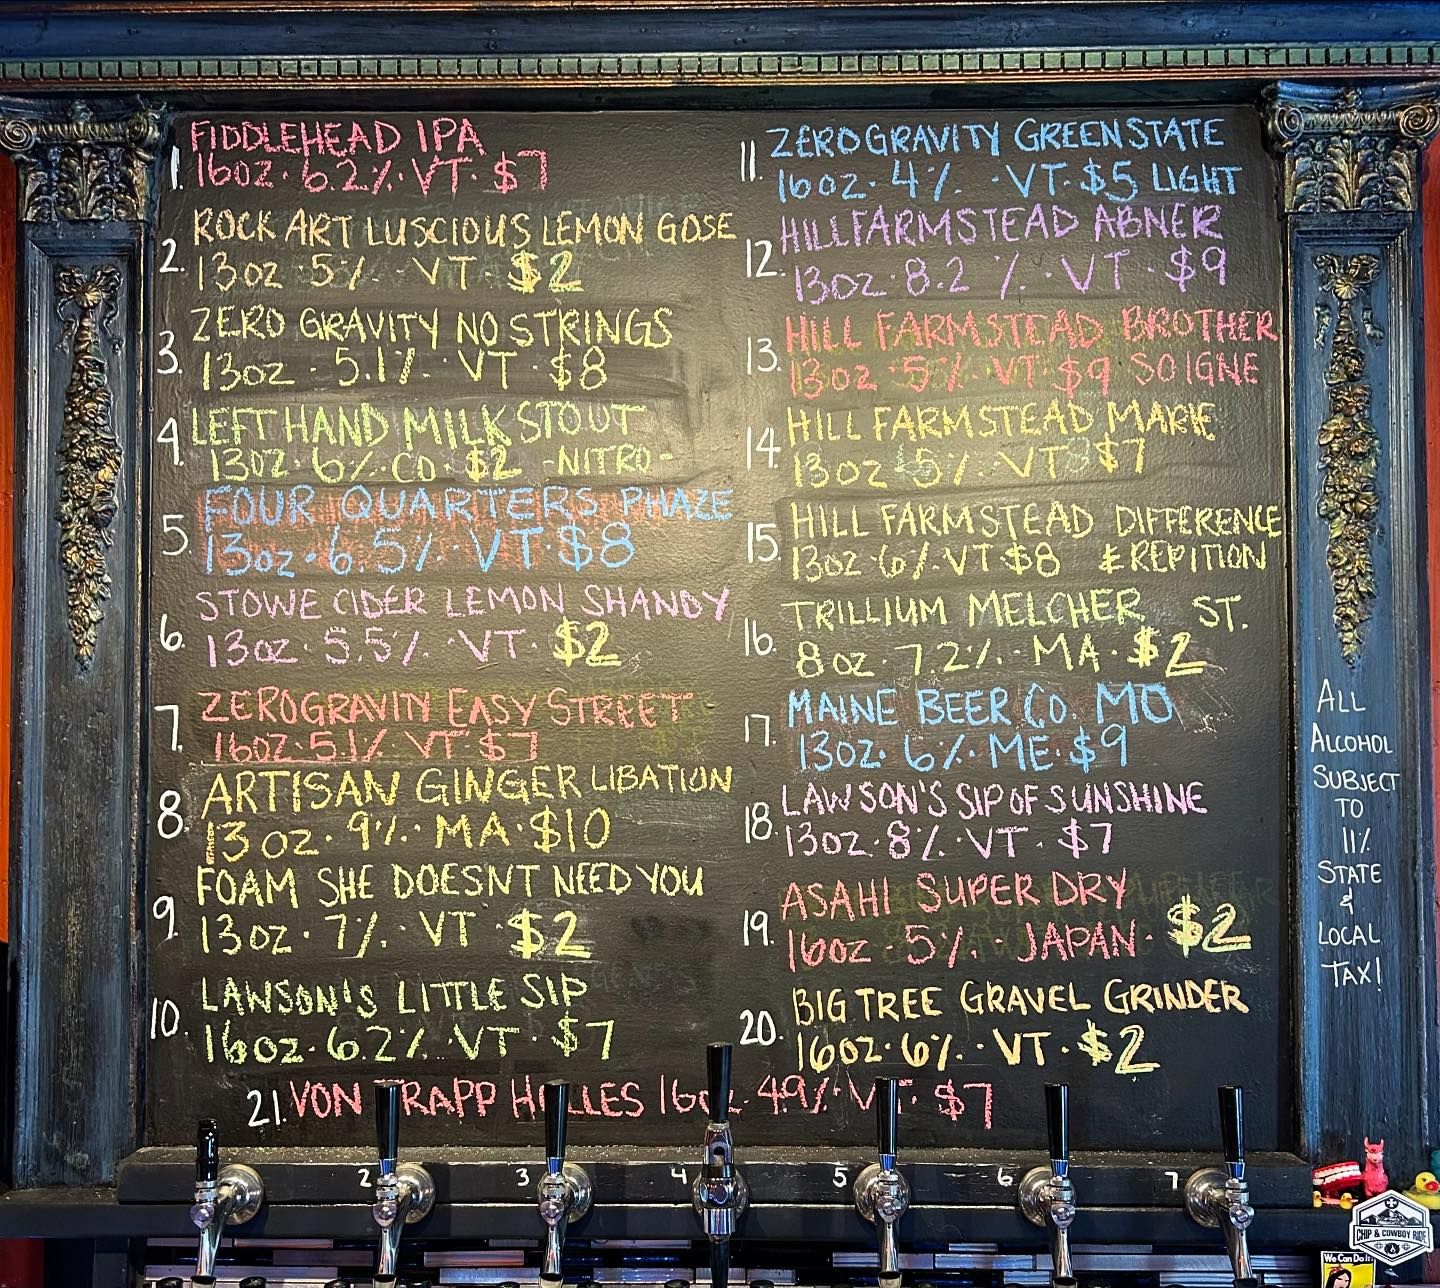 1. FIDDLEHEAD IPA
16OZ · 6.2% · VT · $7
2. ROCK ART LUSCIOUS LEMON GOSE
13OZ · 5% · VT · $2
3. ZERO GRAVITY NO STRINGS
13OZ · 5.1% · VT · $8
4. LEFT HAND MILK STOUT
13OZ · 6% · CO · $2 -NITRO-
5. FOUR QUARTERS PHAZE
13OZ · 6.5% · VT · $8
6. STOWE CIDER LEMON SHANDY
13OZ · 5.5% · VT · $2
7. ZEROGRAVITY EASY STREET
16OZ · 5.1% · VT · $7
8. ARTISAN GINGER LIBATION
13OZ · 9% · MA · $10
9. FOAM SHE DOESNT NEED YOU
13OZ · 7% · VT · $2
10. LAWSON'S LITTLE SIP
16OZ · 6.2% · VT · $7
11. ZEROGRAVITY GREEN STATE
16OZ · 4% · VT · $5 LIGHT
12. HILLFARMSTEAD ABNER
13OZ · 8.2% · VT · $9
13. HILL FARMSTEAD BROTHER
13OZ · 5% · VT · $9 SOIGNE
14. HILL FARMSTEAD MARIE
13OZ · 5% · VT · $7
15. HILL FARMSTEAD DIFFERENCE
13OZ · 6% · VT $8 & REPITION
16. TRILLIUM MELCHER ST.
8OZ · 7.2% · MA · $2
17. MAINE BEER CO. MO
13OZ · 6% · ME · $9
18. LAWSON'S SIP OF SUNSHINE
13OZ · 8% · VT · $7
19. ASAHI SUPER DRY
16OZ · 5% · JAPAN · $2
20. BIG TREE GRAVEL GRINDER
16OZ · 6% · VT · $2
21. VON TRAPP HELLES 16OZ · 4.9% · VT · $7
ALL
ALCOHOL
SUBJECT
TO
11%
STATE
&
LOCAL
TAX!
2 3 4 5 6 7
CHIP & COWBOY RIDE
We Can Do It!